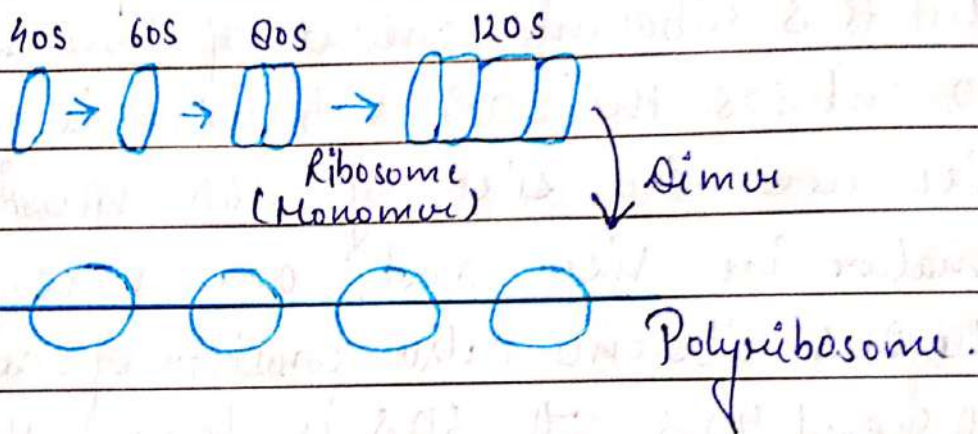 40S 60S 80S 120S
Ribosome
(Monomer)
Dimer
Polyribosome.